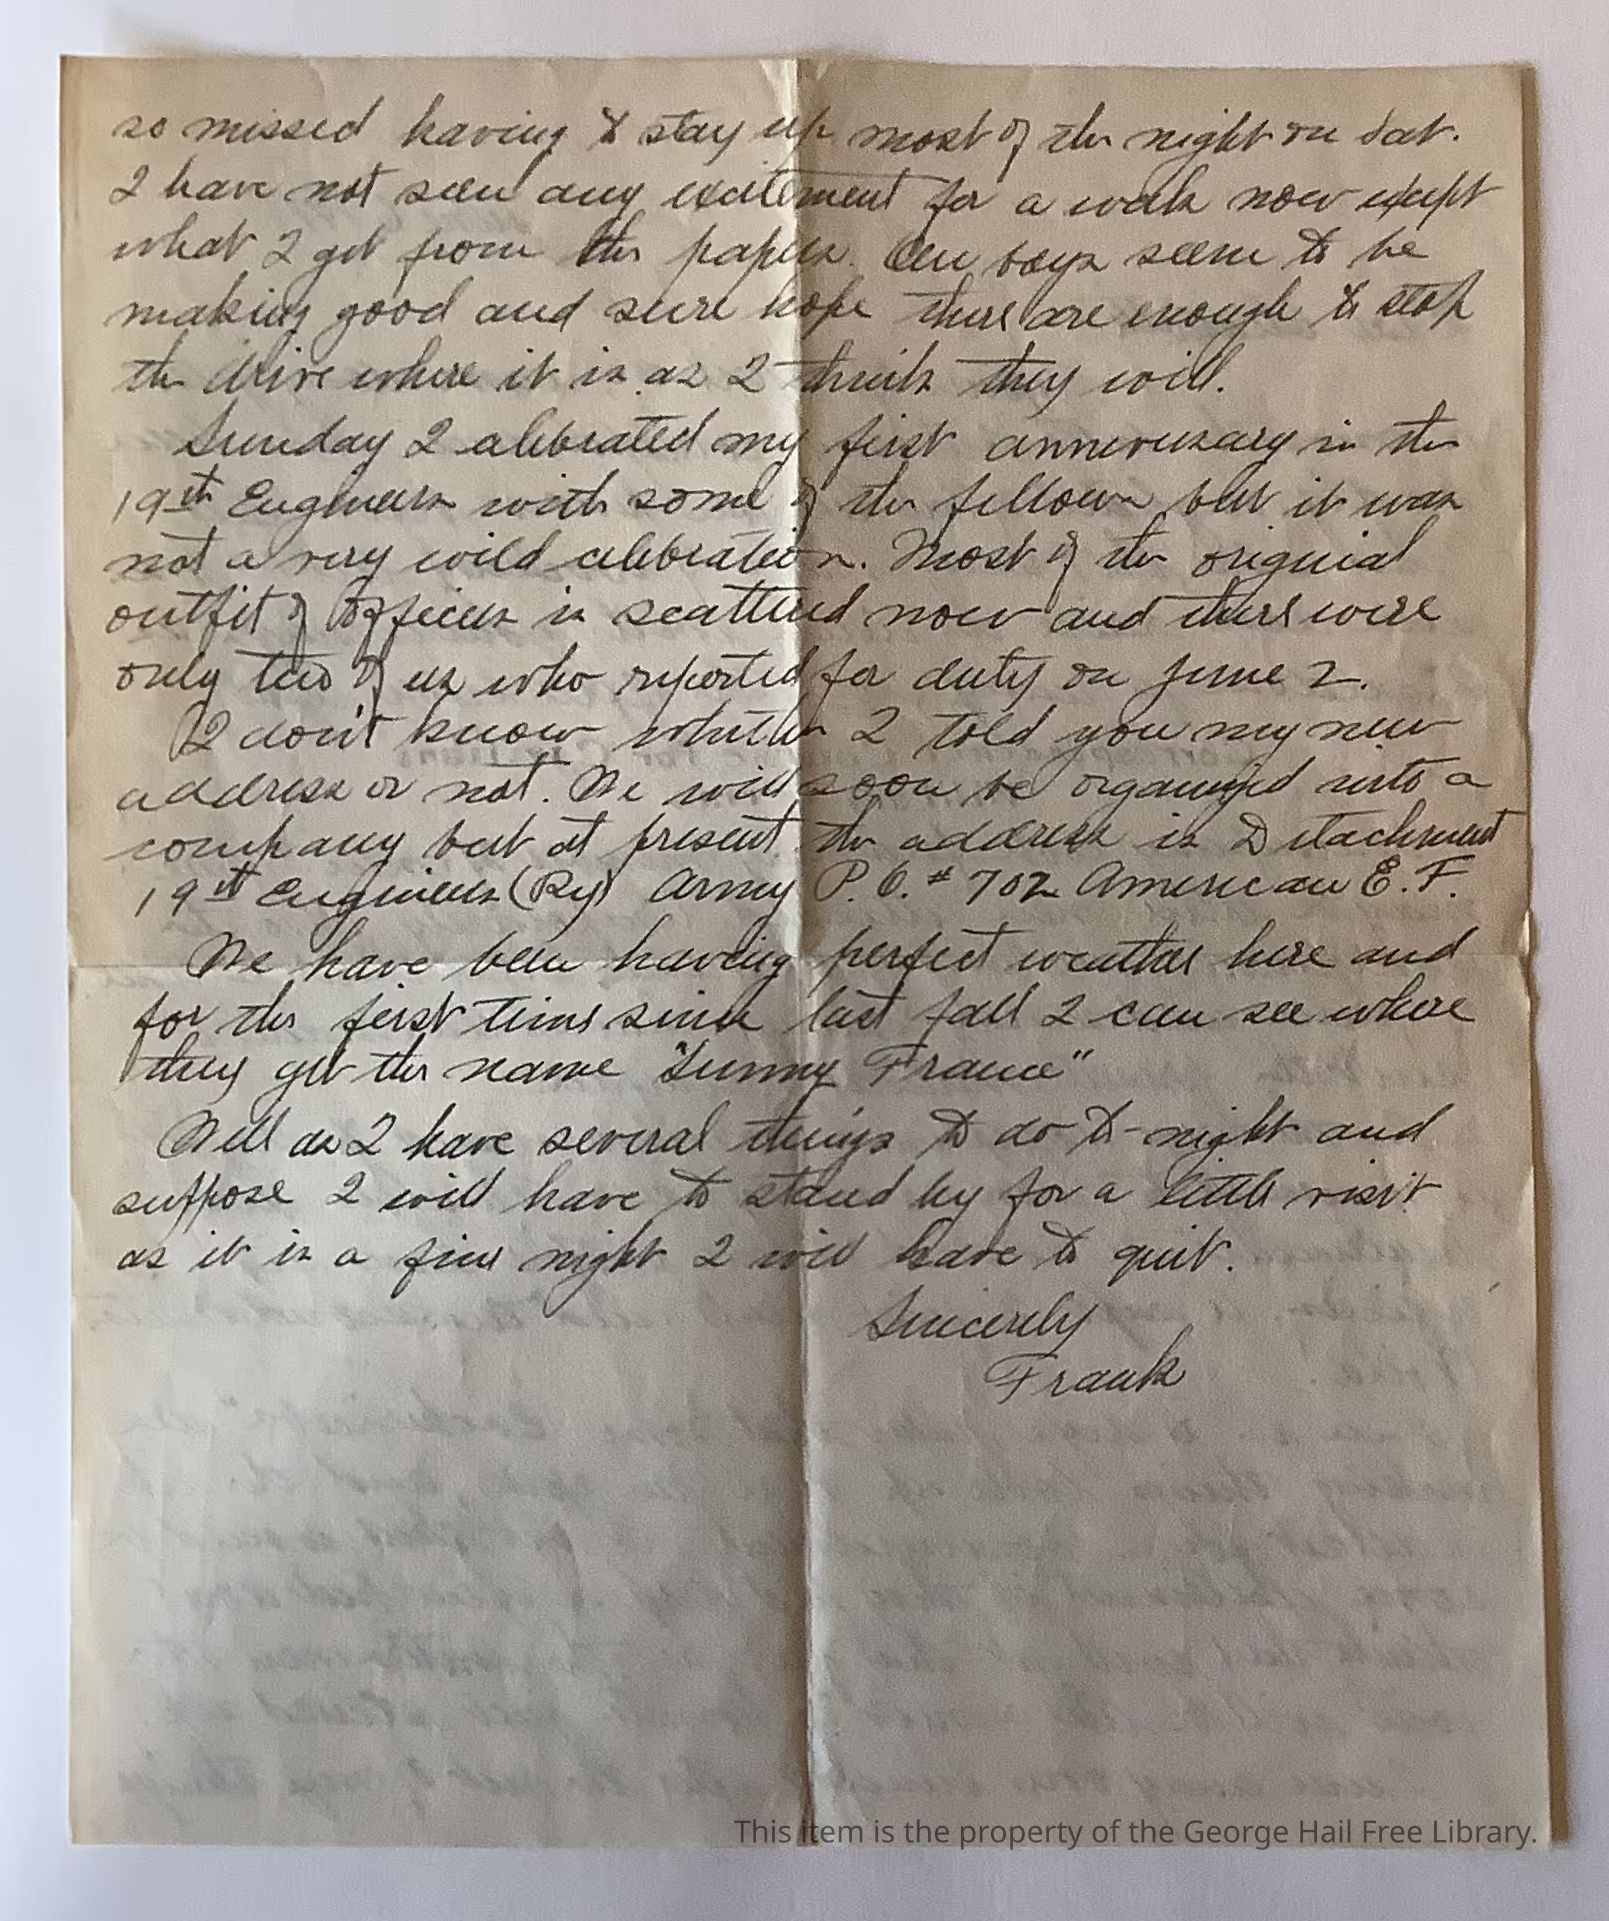 so missed having to stay up most of the night on Sat.
I have not seen any excitement for a week now except
what I get from the papers. Our boys seem to be
making good and sure hope there are enough to stop
the drive where it is as I think they will.
Sunday I celebrated my first anniversary in the
19th Engineers with some of the fellows but it was
not a very wild celebration. Most of the original
outfit of officers is scattered now and there were
only two of us who reported for duty on June 2.
I don't know whether I told you my new
address or not. We will soon be organized into a
company but at present the address is Detachment
19th Engineers (Ry) Army P.O. # 702 American E.F.
We have been having perfect weather here and
for the first time since last fall I can see where
they get the name "Sunny France"
Well as I have several things to do to-night and
suppose I will have to stand by for a little visit
as it is a fine night I will have to quit.
Sincerely
Frank
This item is the property of the George Hail Free Library.